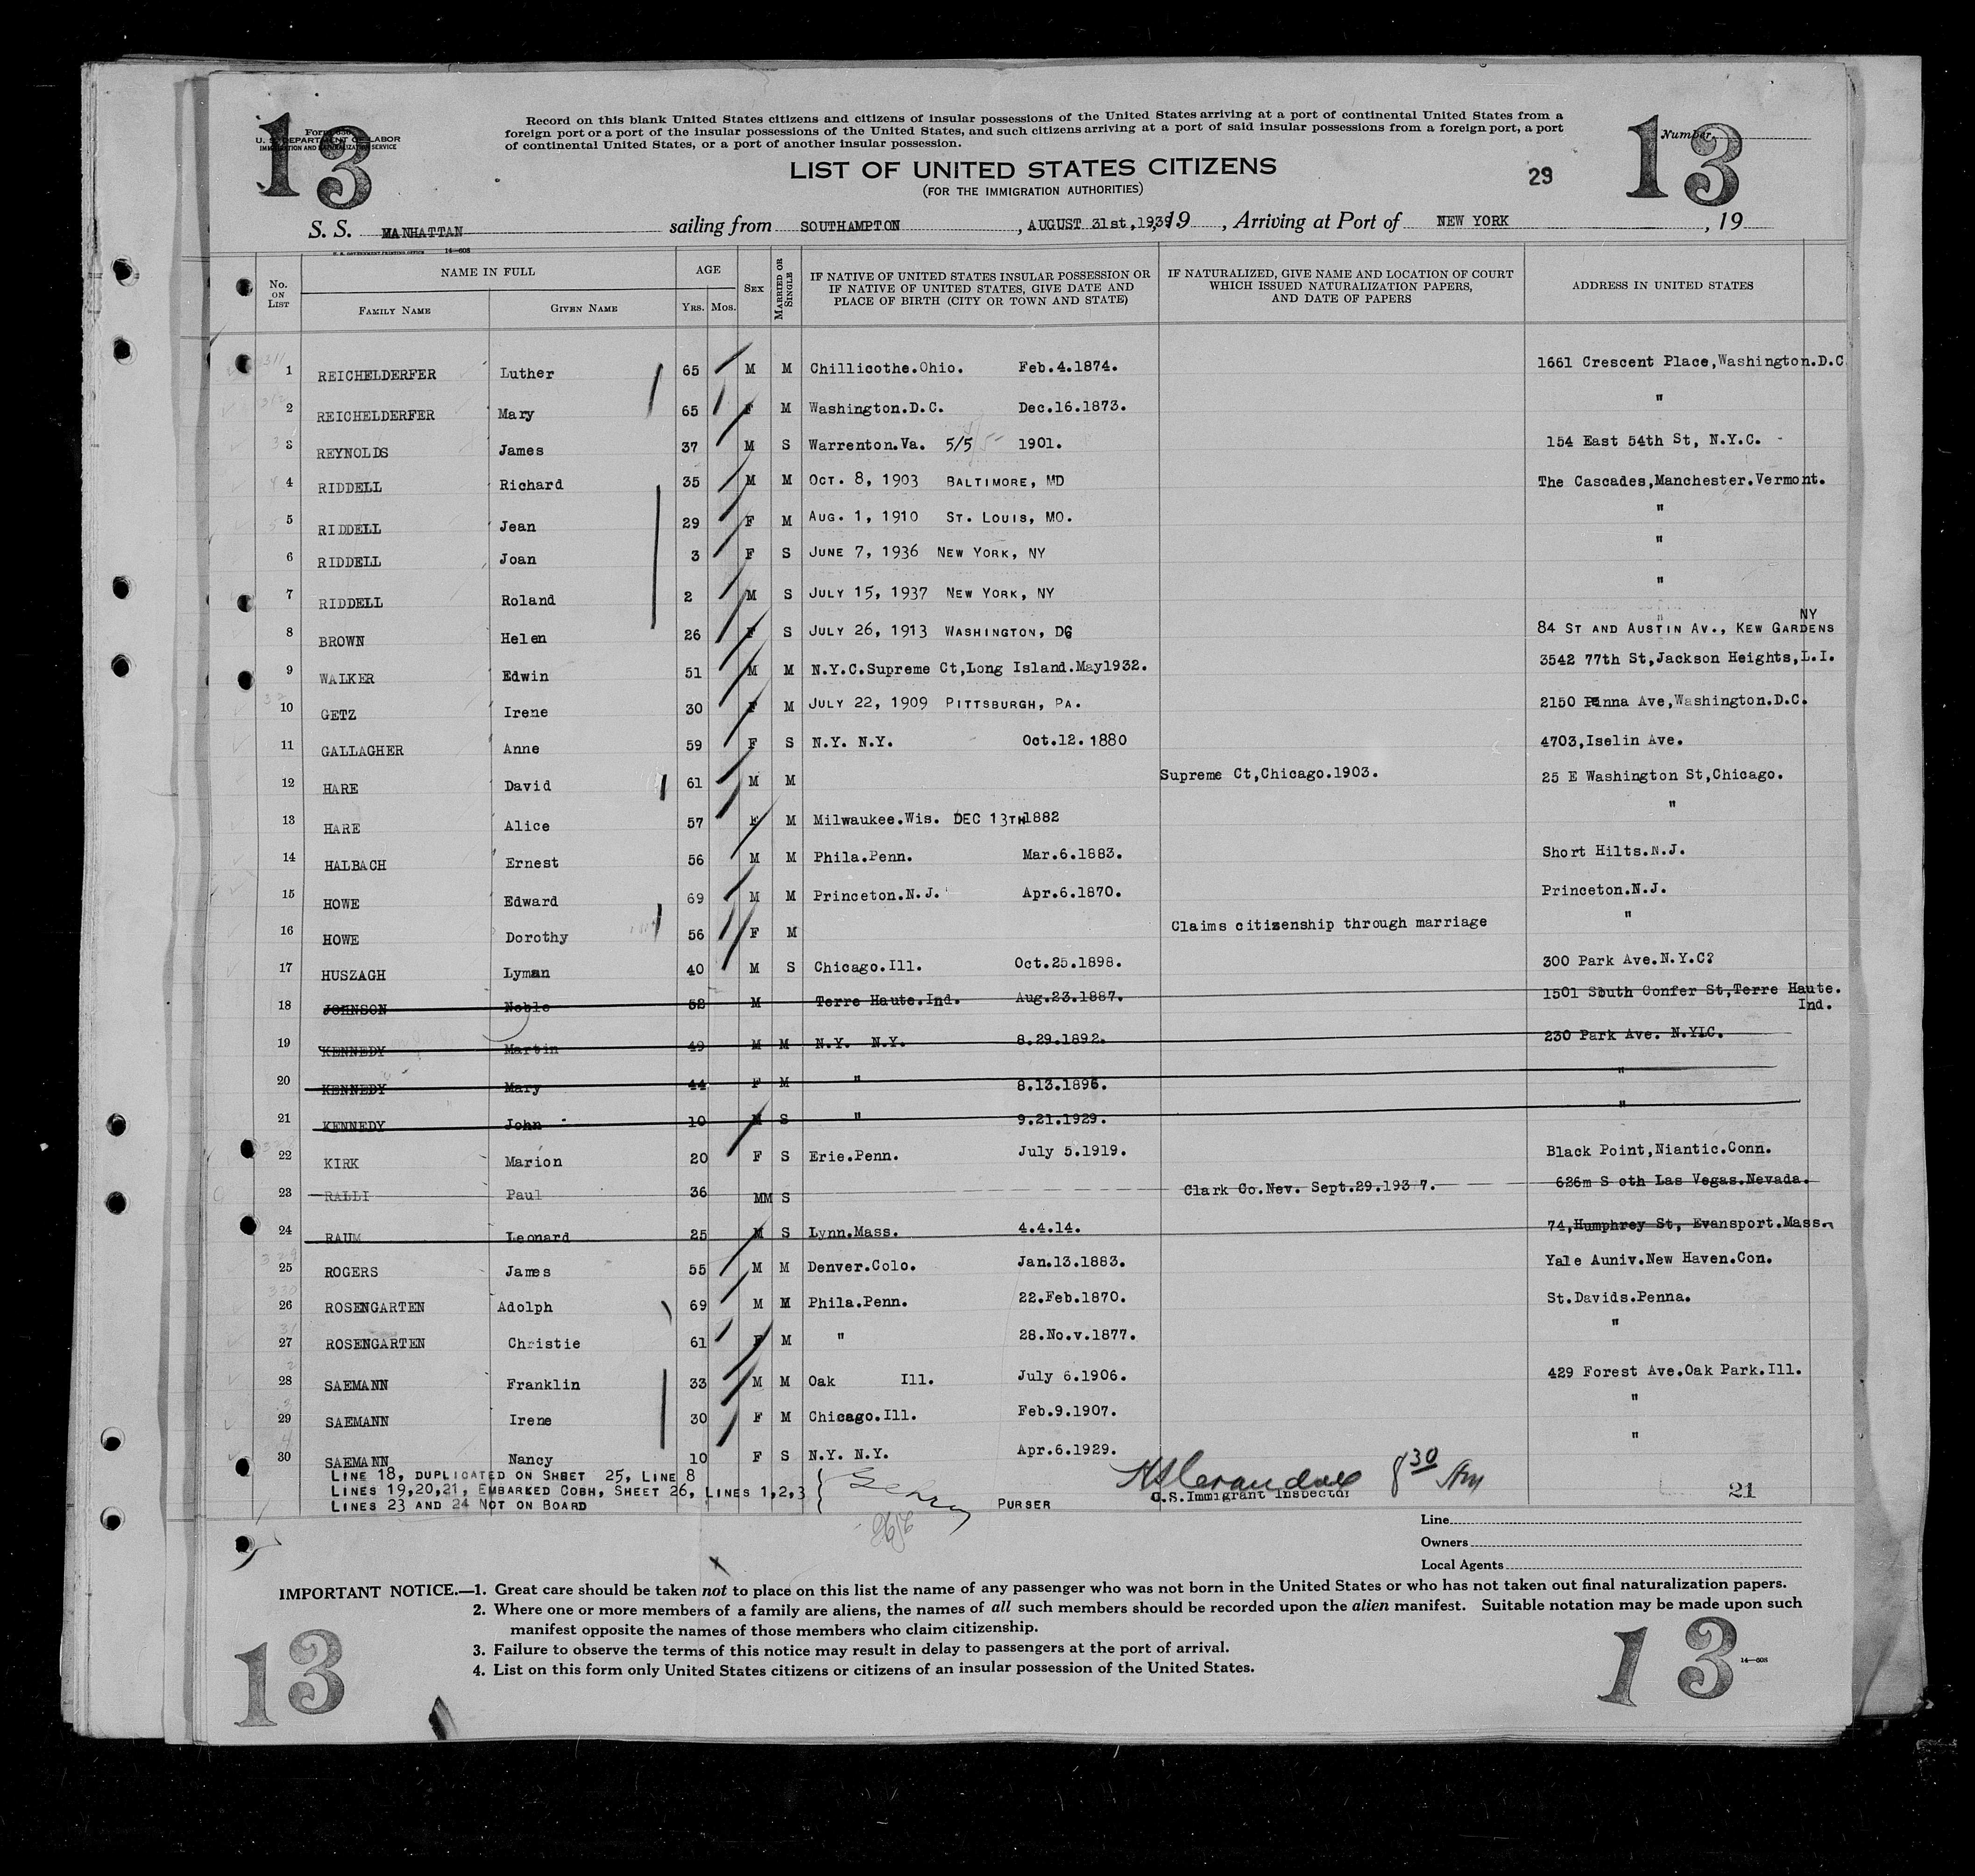 13
Form 630
U. S. DEPARTMENT OF LABOR
IMMIGRATION AND NATURALIZATION SERVICE
Record on this blank United States citizens and citizens of insular possessions of the United States arriving at a port of continental United States from a
foreign port or a port of the insular possessions of the United States, and such citizens arriving at a port of said insular possessions from a foreign port, a port
of continental United States, or a port of another insular possession.
Number
13
LIST OF UNITED STATES CITIZENS
(FOR THE IMMIGRATION AUTHORITIES)
29
S. S. MANHATTAN sailing from SOUTHAMPTON , AUGUST 31st,1939, 19 , Arriving at Port of NEW YORK , 19
U. S. GOVERNMENT PRINTING OFFICE 14—608
No. ON LIST NAME IN FULL FAMILY NAME GIVEN NAME AGE YRS. MOS. SEX MARRIED OR SINGLE IF NATIVE OF UNITED STATES INSULAR POSSESSION OR IF NATIVE OF UNITED STATES, GIVE DATE AND PLACE OF BIRTH (CITY OR TOWN AND STATE) IF NATURALIZED, GIVE NAME AND LOCATION OF COURT WHICH ISSUED NATURALIZATION PAPERS, AND DATE OF PAPERS ADDRESS IN UNITED STATES
1 REICHELDERFER Luther 65 M M Chillicothe.Ohio. Feb.4.1874. 1661 Crescent Place,Washington.D.C
2 REICHELDERFER Mary 65 F M Washington.D.C. Dec.16.1873. "
3 REYNOLDS James 37 M S Warrenton.Va. 5/5 1901. 154 East 54th St, N.Y.C. -
4 RIDDELL Richard 35 M M OCT. 8, 1903 BALTIMORE, MD The Cascades,Manchester.Vermont.
5 RIDDELL Jean 29 F M AUG. 1, 1910 ST. LOUIS, MO. "
6 RIDDELL Joan 3 F S JUNE 7, 1936 NEW YORK, NY "
7 RIDDELL Roland 2 M S JULY 15, 1937 NEW YORK, NY "
NY
8 BROWN Helen 26 F S JULY 26, 1913 WASHINGTON, DC 84 ST AND AUSTIN AV., KEW GARDENS
9 WALKER Edwin 51 M M N.Y.C.Supreme Ct,Long Island.May1932. 3542 77th St,Jackson Heights,L.I.
10 GETZ Irene 30 F M JULY 22, 1909 PITTSBURGH, PA. 2150 Penna Ave,Washington.D.C.
11 GALLAGHER Anne 59 F S N.Y. N.Y. Oct.12.1880 4703,Iselin Ave.
12 HARE David 61 M M Supreme Ct,Chicago.1903. 25 E Washington St,Chicago.
13 HARE Alice 57 F M Milwaukee.Wis. DEC 13TH 1882 "
14 HALBACH Ernest 56 M M Phila.Penn. Mar.6.1883. Short Hilts.N.J.
15 HOWE Edward 69 M M Princeton.N.J. Apr.6.1870. Princeton.N.J.
16 HOWE Dorothy 56 F M Claims citizenship through marriage "
17 HUSZAGH Lyman 40 M S Chicago.Ill. Oct.25.1898. 300 Park Ave.N.Y.C?
18 JOHNSON Noble 52 M Terre Haute.Ind. Aug.23.1887. 1501 South Confer St,Terre Haute.
Ind.
19 KENNEDY Martin 49 M M N.Y. N.Y. 8.29.1892. 230 Park Ave. N.YIC.
20 KENNEDY Mary 44 F M " 8.13.1896. "
21 KENNEDY John 10 M S " 9.21.1929. "
22 KIRK Marion 20 F S Erie.Penn. July 5.1919. Black Point,Niantic.Conn.
23 RALLI Paul 36 MM S Clark Co.Nev. Sept.29.193 7. 626m S oth Las Vegas.Nevada.
24 RAUM Leonard 25 M S Lynn.Mass. 4.4.14. 74,Humphrey St, Evansport.Mass.
25 ROGERS James 55 M M Denver.Colo. Jan.13.1883. Yale Auniv.New Haven.Con.
26 ROSENGARTEN Adolph 69 M M Phila.Penn. 22.Feb.1870. St.Davids.Penna.
27 ROSENGARTEN Christie 61 F M " 28.No.v.1877. "
28 SAEMANN Franklin 33 M M Oak Ill. July 6.1906. 429 Forest Ave.Oak Park.Ill.
29 SAEMANN Irene 30 F M Chicago.Ill. Feb.9.1907. "
30 SAEMANN Nancy 10 F S N.Y. N.Y. Apr.6.1929. "
LINE 18, DUPLICATED ON SHEET 25, LINE 8
LINES 19,20,21, EMBARKED COBH, SHEET 26, LINES 1,2,3
LINES 23 AND 24 NOT ON BOARD
PURSER
U.S.Immigrant Inspector
8 30 Am
21
Line
Owners
Local Agents
IMPORTANT NOTICE.—1. Great care should be taken not to place on this list the name of any passenger who was not born in the United States or who has not taken out final naturalization papers.
2. Where one or more members of a family are aliens, the names of all such members should be recorded upon the alien manifest. Suitable notation may be made upon such
manifest opposite the names of those members who claim citizenship.
3. Failure to observe the terms of this notice may result in delay to passengers at the port of arrival.
4. List on this form only United States citizens or citizens of an insular possession of the United States.
14—608
13
13